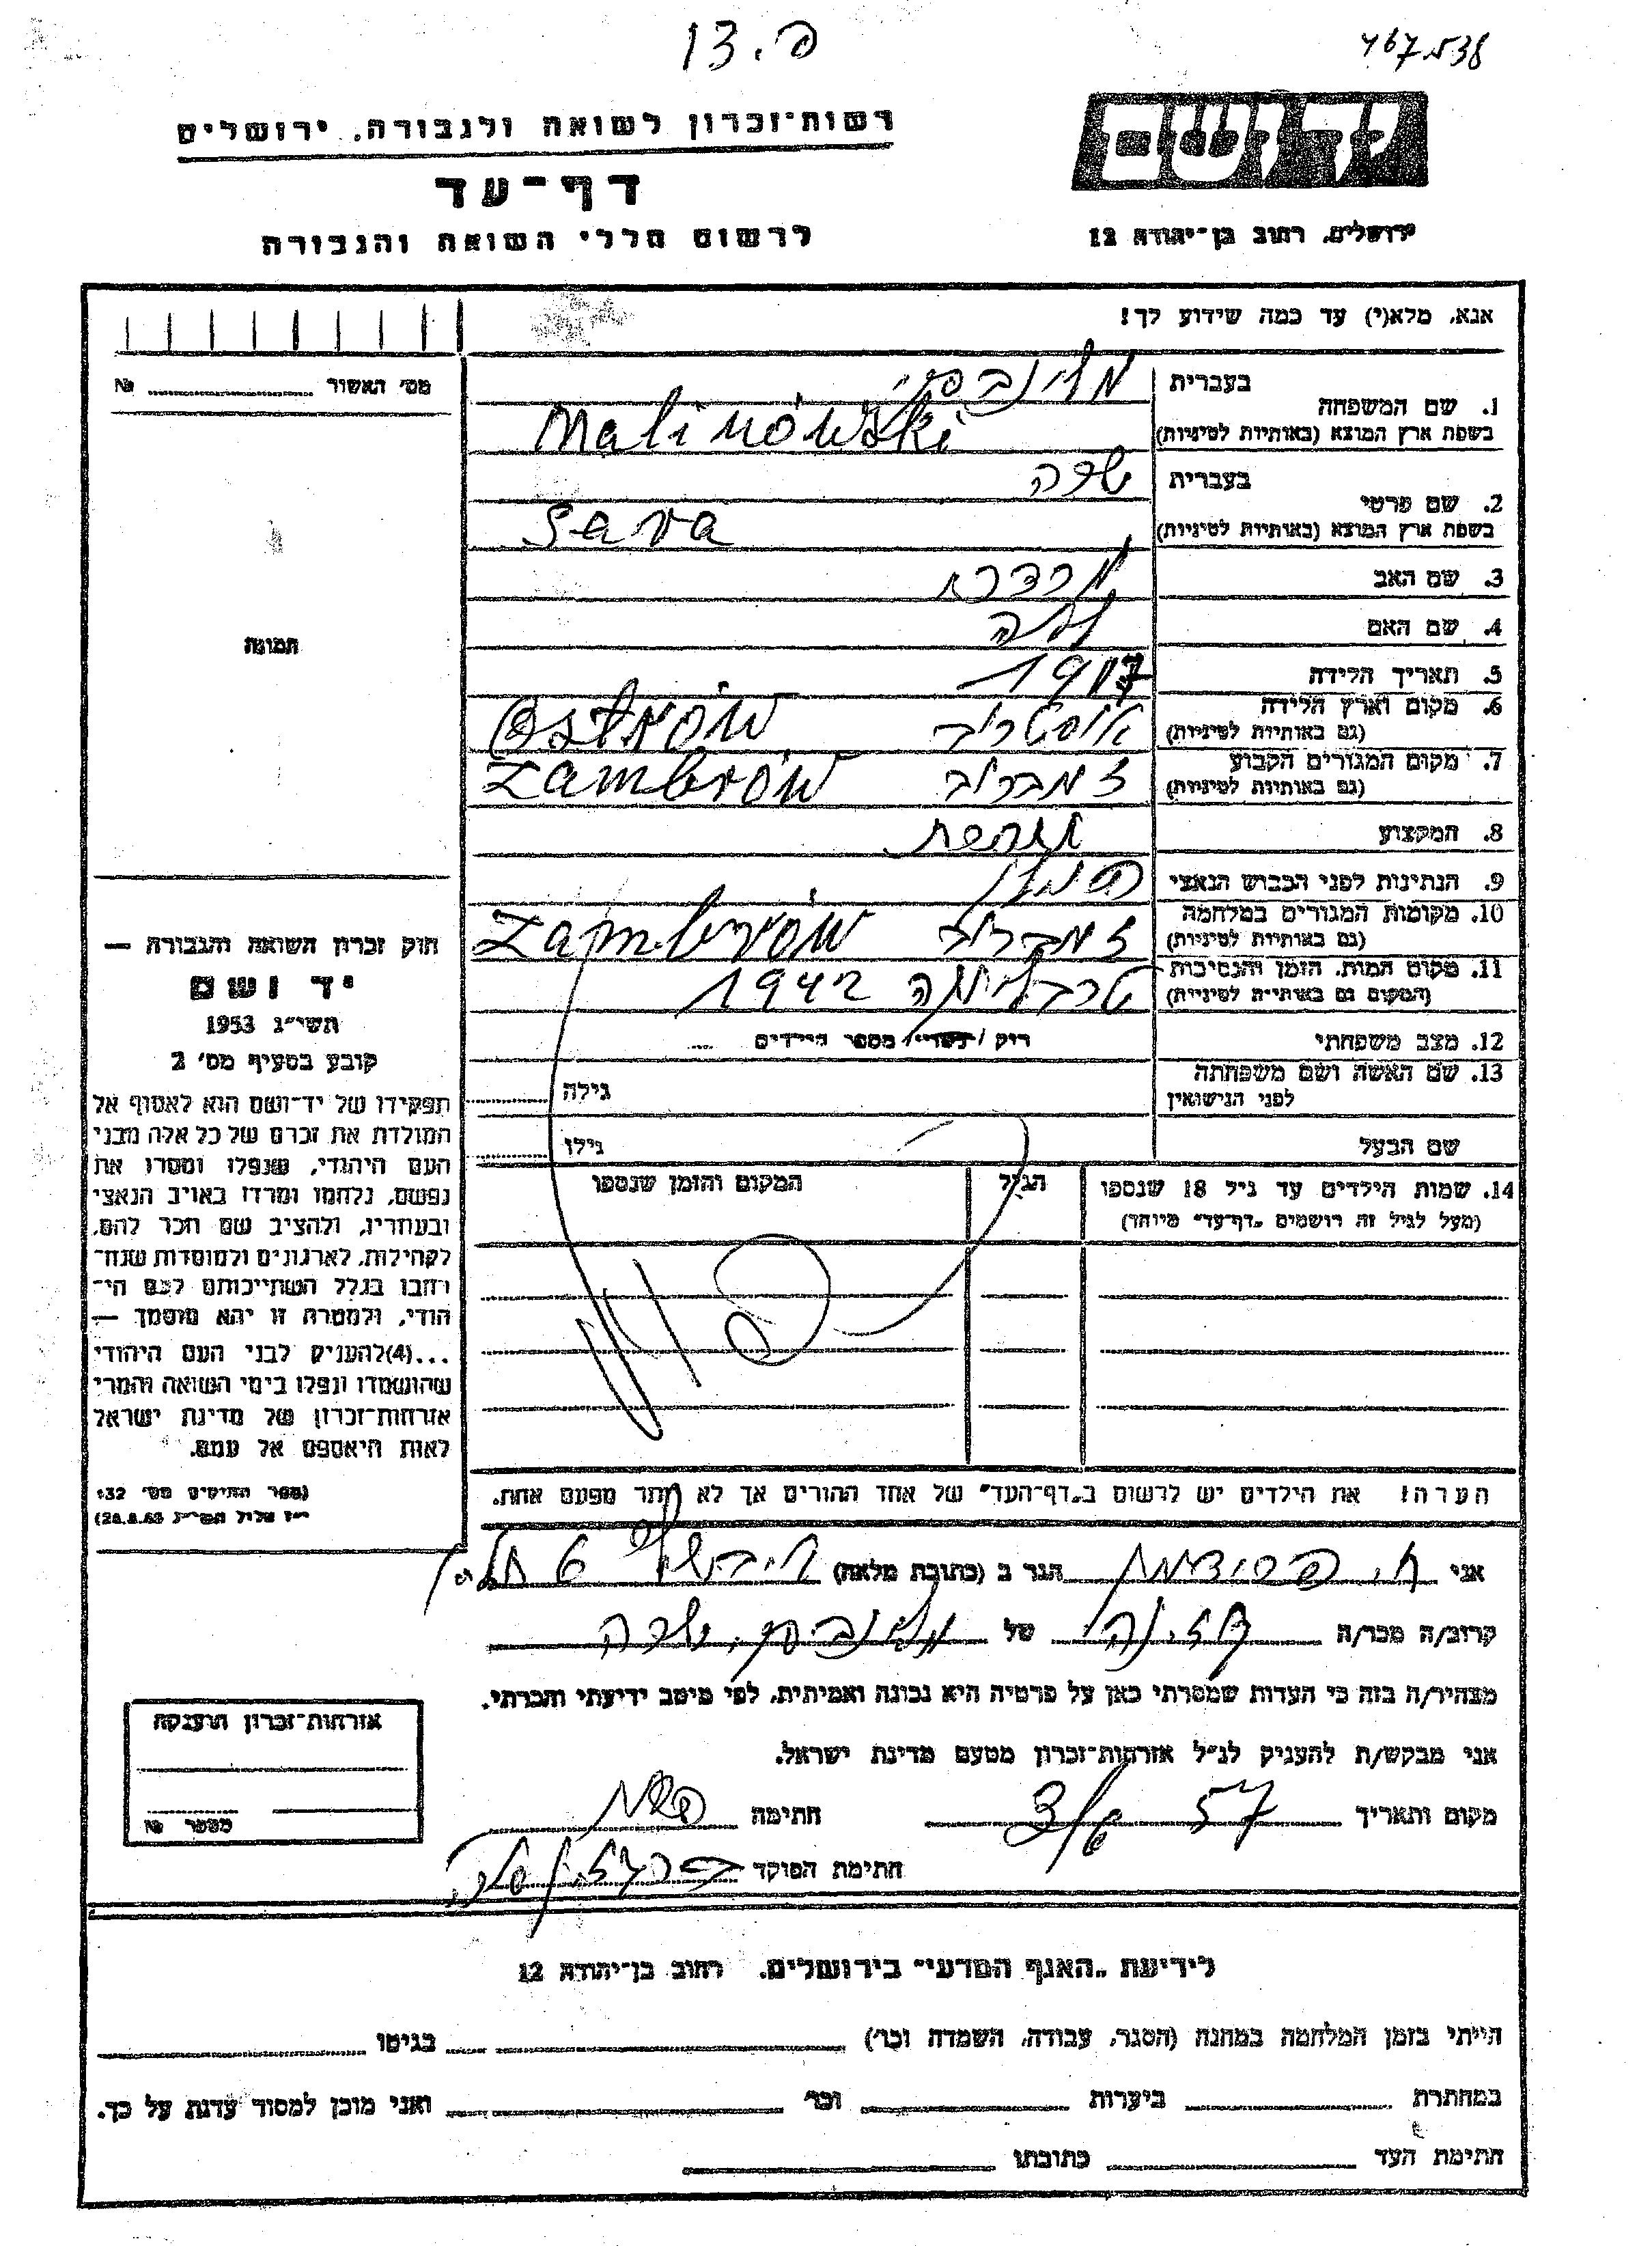 פ. 13
467538
רשות־זכרון לשואה ולגבורה, ירושלים
דף־עד
לרשום חללי השואה והגבורה
יד ושם
ירושלים, רחוב בן־יהודה 12
אנא, מלא(י) עד כמה שידוע לך!
מס׳ האשור № 
1. שם המשפחה
בעברית מלינובסקי
בשפת ארץ המוצא (באותיות לטיניות) Malinówski
2. שם פרטי
בעברית שרה
בשפת ארץ המוצא (באותיות לטיניות) Sara
3. שם האב מרדכי
4. שם האם
5. תאריך הלידה 1917
6. מקום וארץ הלידה
(גם באותיות לטיניות) אוסטרוב Ostrów
7. מקום המגורים הקבוע
(גם באותיות לטיניות) זמברוב Zambrów
8. המקצוע תופרת
9. הנתינות לפני הכבוש הנאצי פולין
10. מקומות המגורים במלחמה
(גם באותיות לטיניות) זמברוב Zambrów
11. מקום המות, הזמן והנסיבות
(המקום גם באותיות לטיניות) טרבלינקה 1942
12. מצב משפחתי רוק / נשוי / מספר הילדים
13. שם האשה ושם משפחתה
לפני הנישואין גילה
שם הבעל גילו
14. שמות הילדים עד גיל 18 שנספו
(מעל לגיל זה רושמים „דף־עד״ מיוחד)
הגיל
המקום והזמן שנספו
תמונה
חוק זכרון השואה והגבורה —
יד ושם
תשי״ג 1953
קובע בסעיף מס׳ 2
תפקידו של יד־ושם הוא לאסוף אל
המולדת את זכרם של כל אלה מבני
העם היהודי, שנפלו ומסרו את
נפשם, נלחמו ומרדו באויב הנאצי
ובעוזריו, ולהציב שם וזכר להם,
לקהילות, לארגונים ולמוסדות שנח־
רחבו בגלל השתייכותם לעם הי־
הודי, ולמטרה זו יהא מוסמך —
...(4)להעניק לבני העם היהודי
שהושמדו ונפלו בימי השואה והמרי
אזרחות־זכרון של מדינת ישראל
לאות היאספם אל עמם.
(ספר החוקים מס׳ 132
י״ז אלול תשי״ג 28.8.53)
הערה! את הילדים יש לרשום ב„דף־העד״ של אחד ההורים אך לא יותר מפעם אחת.
אני הגר ב (כתובת מלאה)
קרוב/ה מכר/ה של מלינובסקי שרה
מצהיר/ה בזה כי העדות שמסרתי כאן על פרטיה היא נכונה ואמיתית, לפי מיטב ידיעתי והכרתי.
אני מבקש/ת להעניק לנ״ל אזרחות־זכרון מטעם מדינת ישראל.
מקום ותאריך חתימה
חתימת הפוקד
אזרחות־זכרון הוענקה
מספר №
לידיעת „האגף המדעי״ בירושלים. רחוב בן־יהודה 12
הייתי בזמן המלחמה במחנה (הסגר, עבודה, השמדה וכו׳) בגיטו
במחתרת ביערות וכו׳ ואני מוכן למסור עדות על כך.
חתימת העד כתובתו